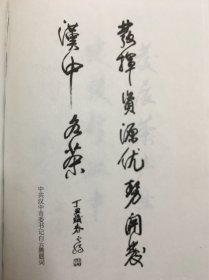 發揮資源优势開發
漢中名茶
丁丑
中共汉中市委书记白云腾题词